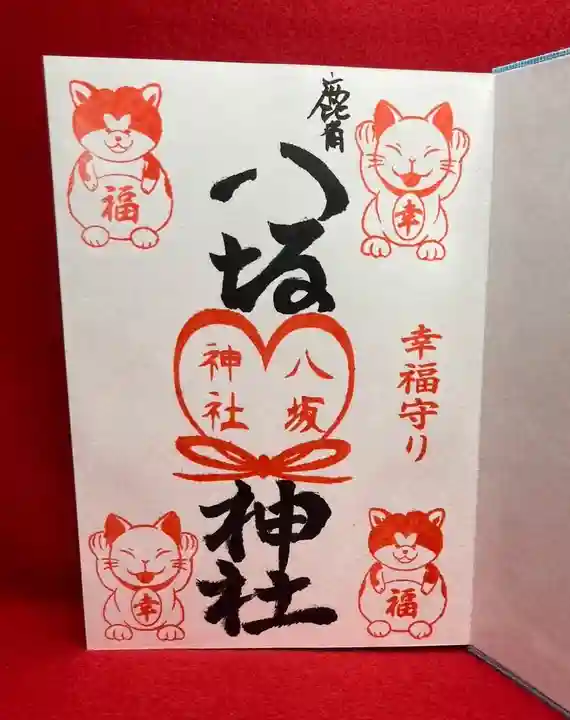 鹿角
八坂
神社
八坂
神社
幸福守り
福
幸
幸
福